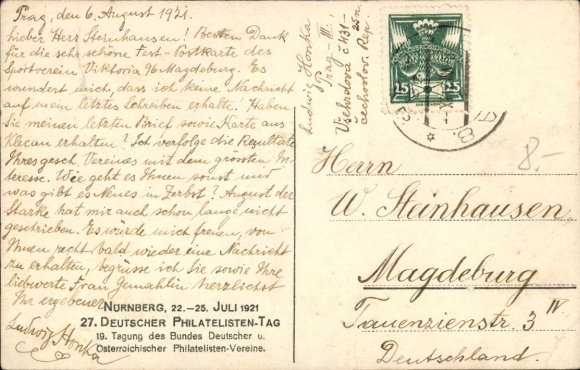 Prag, den 6. August 1921.
Lieber Herr Steinhausen! Besten Dank
für die sehr schöne Fest-Postkarte des
Sportverein Viktoria 96 Magdeburg. Es
wundert mich, dass ich keine Nachricht
auf mein letztes Schreiben erhalte. Haben
Sie meinen letzten Brief sowie Karte aus
Klecan erhalten? Ich verfolge die Resultate
Ihres gesch. Vereines mit dem grössten In-
teresse. Wie geht es Ihnen sonst und
was gibt es Neues in Zerbst? August der
Starke hat mir auch schon lange nicht
geschrieben. Es würde mich freuen, von
Ihnen recht bald wieder eine Nachricht
zu erhalten, begrüsse ich Sie sowie Ihre
liebwerte Frau Gemahlin herzlichst
Ihr ergebener
Ludwig Honka
NÜRNBERG, 22.—25. JULI 1921
27. DEUTSCHER PHILATELISTEN-TAG
19. Tagung des Bundes Deutscher u.
Österreichischer Philatelisten-Vereine.
Ludwig Honka
Prag-III.,
Všehrdova č 1131-
čechoslov. Rep.
25
25
8.-
Herrn
W. Steinhausen
Magdeburg
Trauenzienstr. 3 IV
Deutschland.